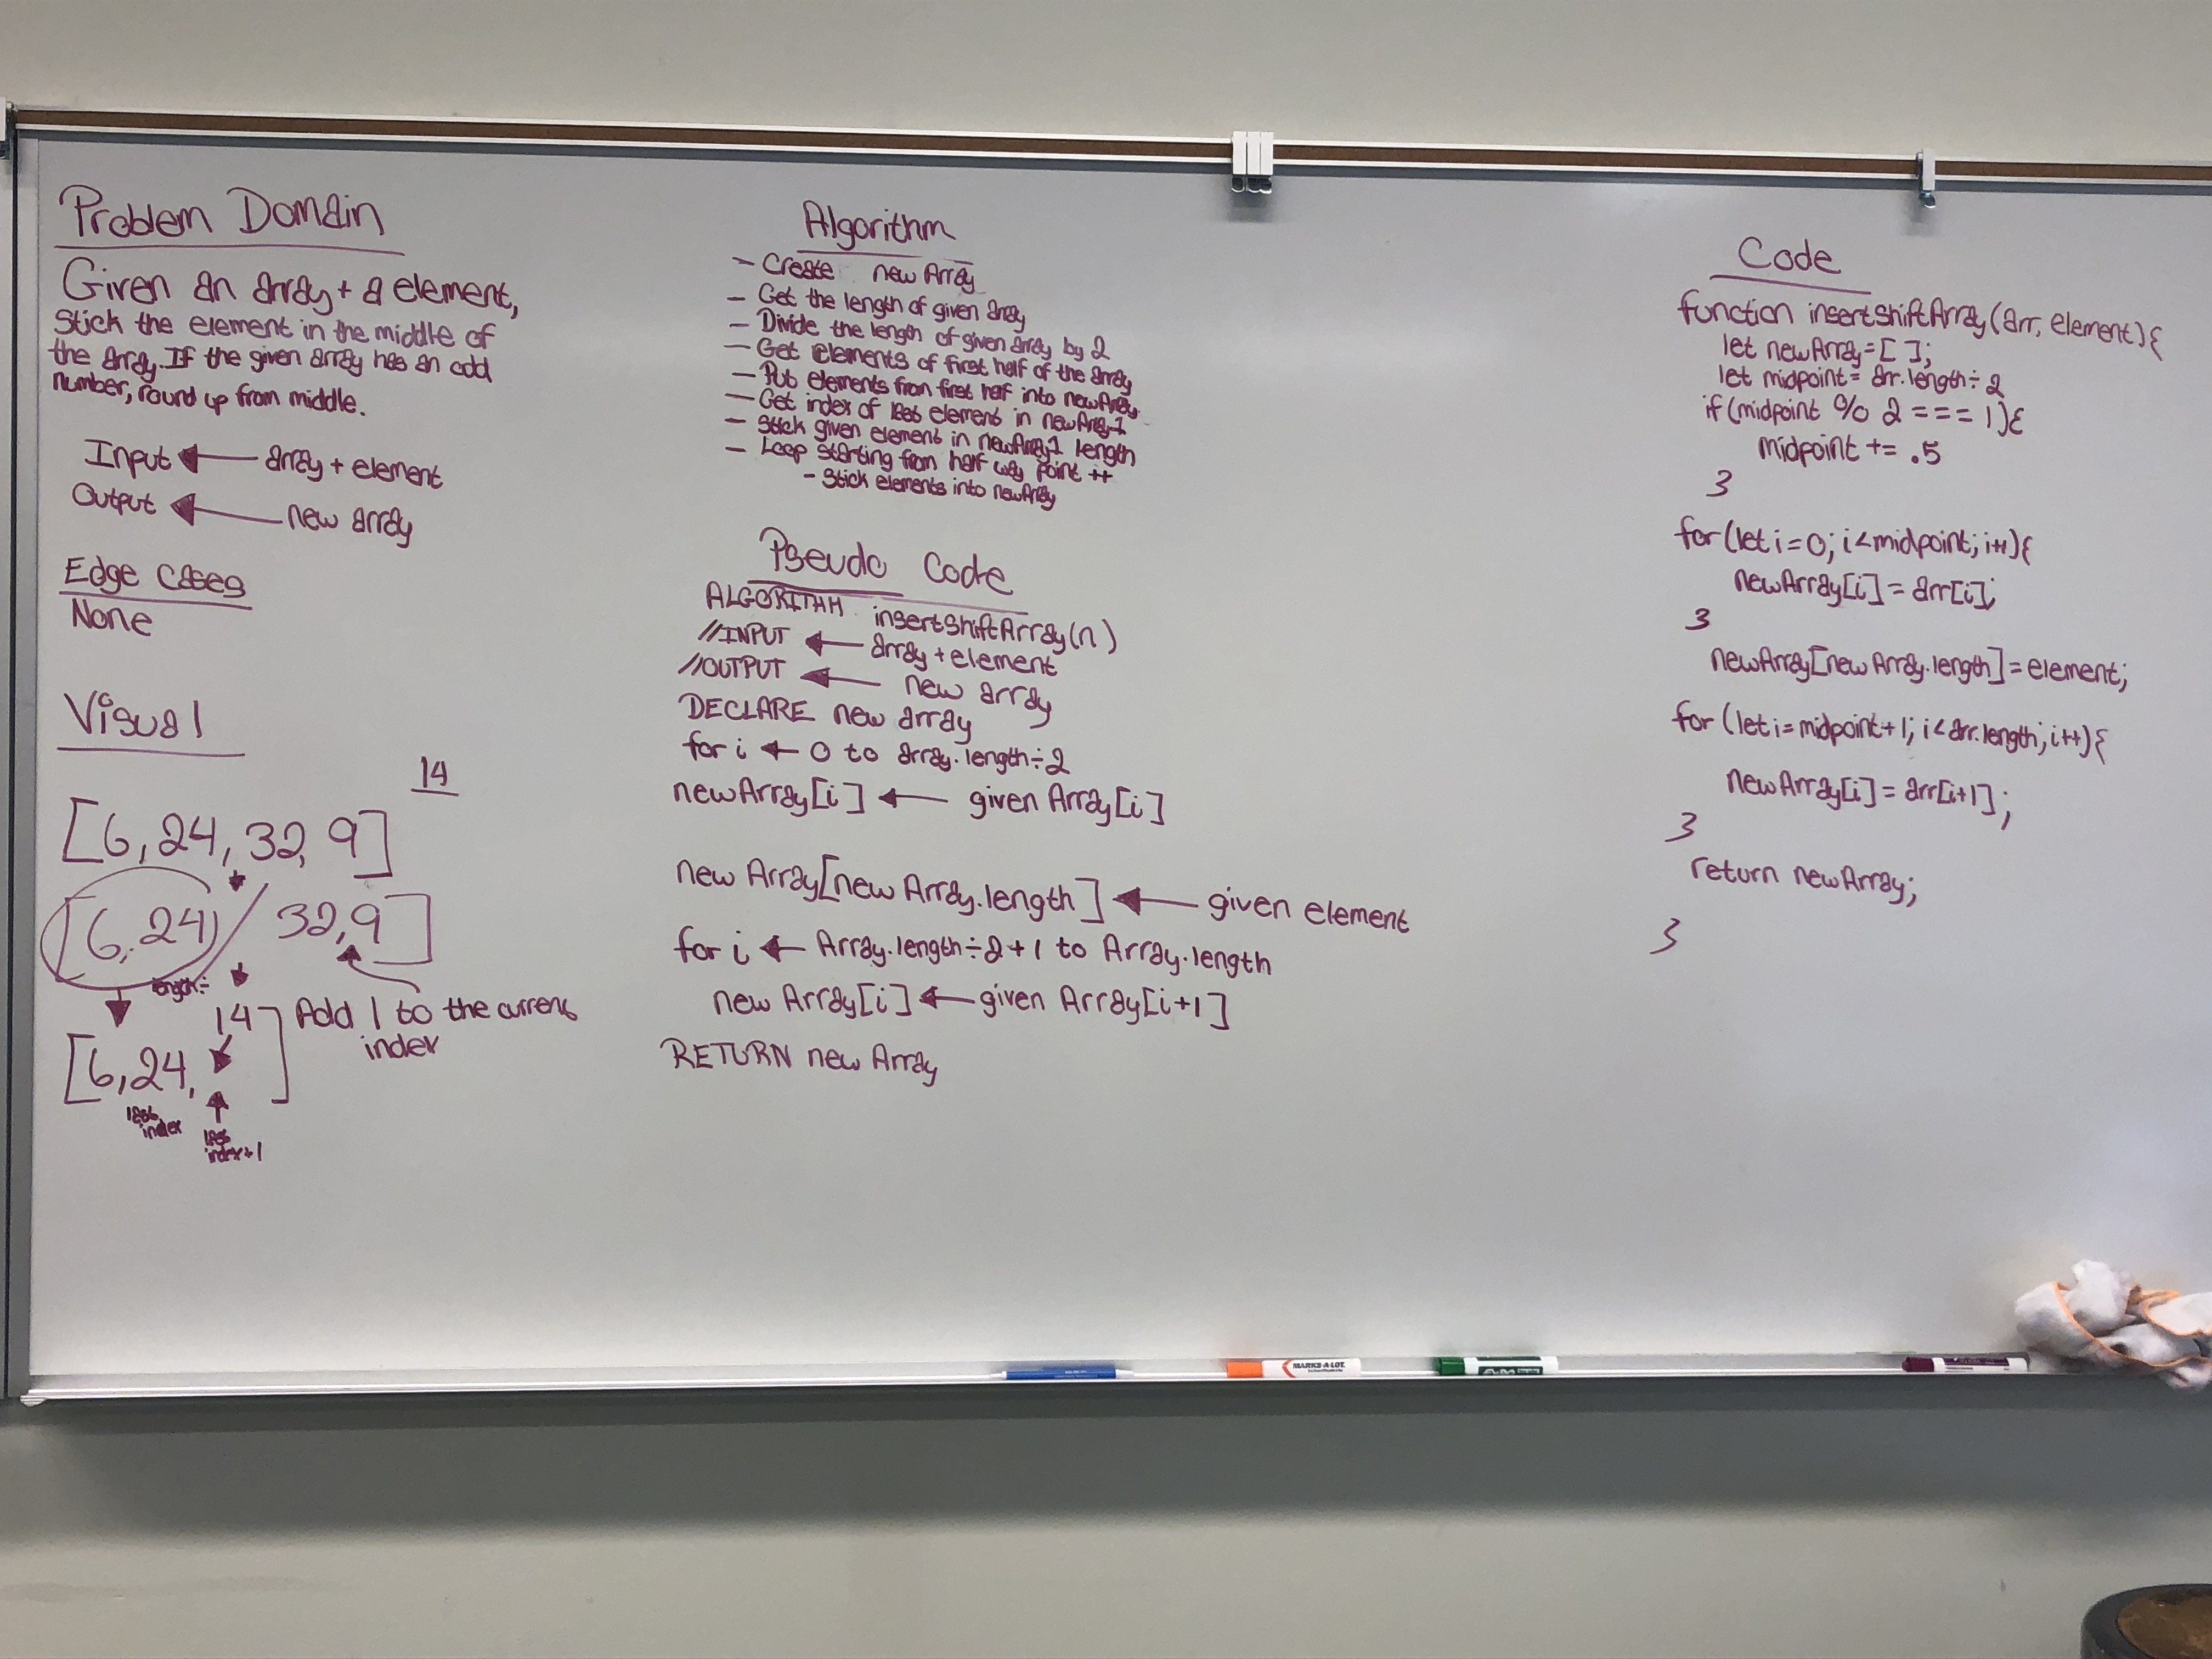 Problem Domain
Given an array + a element,
Stick the element in the middle of
the array. If the given array has an odd
number, round up from middle.
Input ← array + element
Output ← new array
Edge Cases
None
Visual
14
[6, 24, 32, 9]
[6, 24) / 32, 9]
length÷
14
[6, 24, ]
Add 1 to the current
index
last
index
last
index+1
Algorithm
- Create new Array
- Get the length of given array
- Divide the length of given array by 2
- Get elements of first half of the array
- Put elements from first half into newArray
- Get index of last element in newArray-1
- Stick given element in newArray-1 length
- Loop starting from half way point ++
- Stick elements into newArray
Pseudo Code
ALGORITHM insertShiftArray(n)
//INPUT ← array + element
//OUTPUT ← new array
DECLARE new array
for i ← 0 to array.length÷2
newArray[i] ← given Array[i]
new Array[new Array.length] ← given element
for i ← Array.length÷2+1 to Array.length
new Array[i] ← given Array[i+1]
RETURN new Array
Code
function insertShiftArray(arr, element){
let newArray=[ ];
let midpoint= arr.length÷2
if(midpoint % 2 === 1){
midpoint += .5
}
for(let i=0; i<midpoint; i++){
newArray[i] = arr[i];
}
newArray[newArray.length]=element;
for(let i=midpoint+1; i<arr.length; i++){
newArray[i] = arr[i+1];
}
return newArray;
}
MARKS-A-LOT